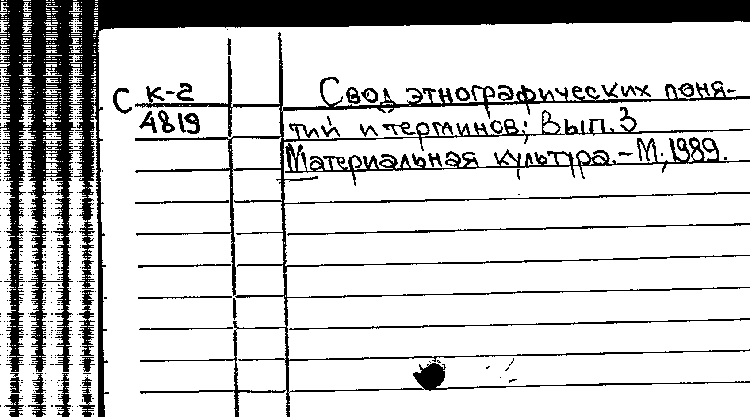 С К-2 Свод этнографических поня-
4819 тий и терминов; Вып. 3
Материальная культура. – М; 1989.